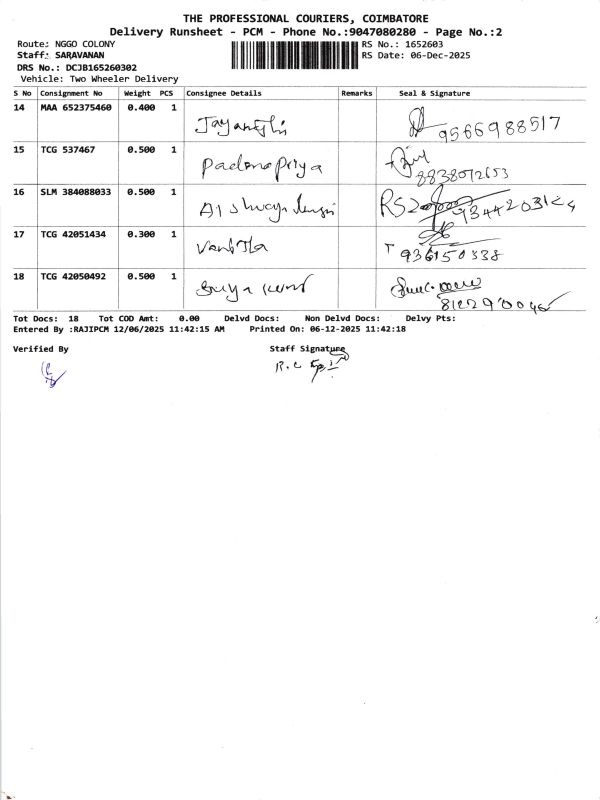 THE PROFESSIONAL COURIERS, COIMBATORE
Delivery Runsheet - PCM - Phone No.:9047080280 - Page No.:2
Route: NGGO COLONY RS No.: 1652603
Staff: SARAVANAN RS Date: 06-Dec-2025
DRS No.: DCJB165260302
Vehicle: Two Wheeler Delivery
S No Consignment No Weight PCS Consignee Details Remarks Seal & Signature
14 MAA 652375460 0.400 1
Jayanthi 9566988517
15 TCG 537467 0.500 1
Padmapriya 8838072653
16 SLM 384088033 0.500 1
17 TCG 42051434 0.300 1
936150338
18 TCG 42050492 0.500 1
Tot Docs: 18 Tot COD Amt: 0.00 Delvd Docs: Non Delvd Docs: Delvy Pts:
Entered By :RAJIPCM 12/06/2025 11:42:15 AM Printed On: 06-12-2025 11:42:18
Verified By Staff Signature